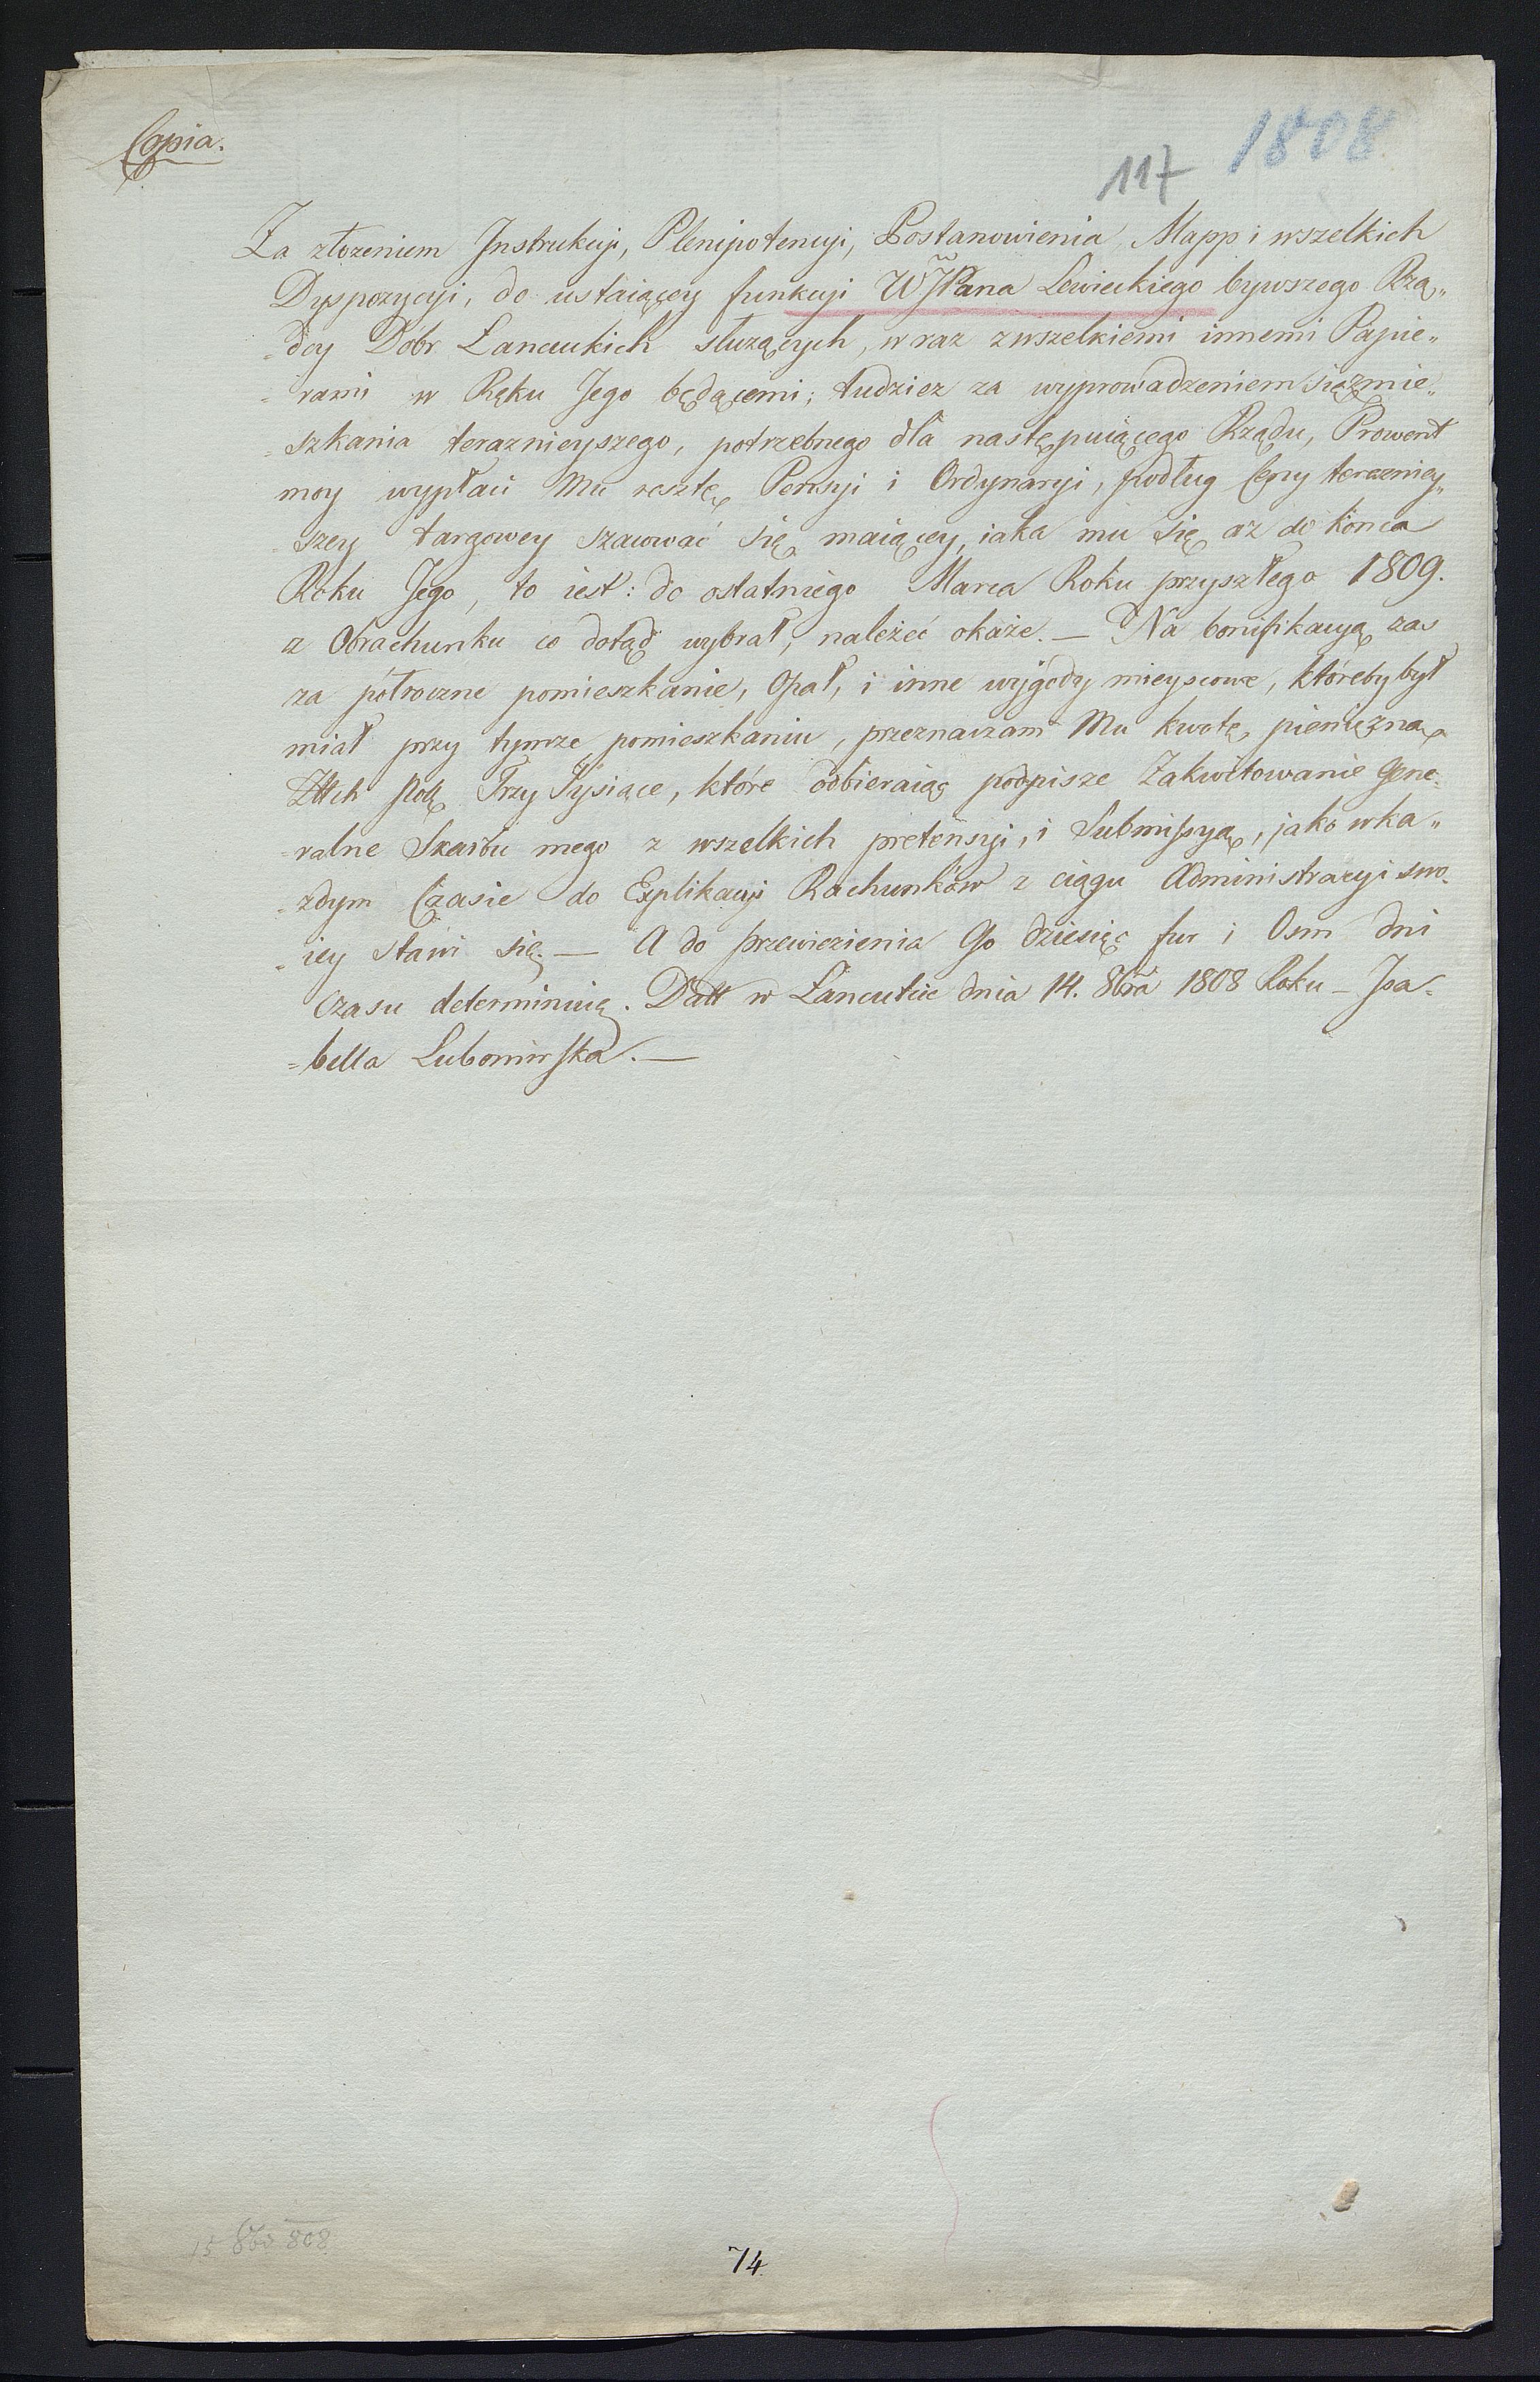 Copia.
1808
117
Za złożeniem Instrukcyi, Plenipotencyi, Postanowienia, Mapp i wszelkich
Dyspozycyi, do ustaiącey funkcyi WJPana Lewickiego bywszego Rzą„
„dcy Dóbr Łancuckich służących, wraz z wszelkiemi innemi Papie„
„rami w Ręku Jego będącemi; tudziez za wyprowadzeniem się z mie„
„szkania teraznieyszego, potrzebnego dla następuiącego Rządu, Prowent
moy wypłaci Mu resztę Pensyi i Ordynaryi, podług Ceny terazniey„
„szey targowey szacować się maiącey, iaka mu się aż do konca
Roku Jego, to iest: do ostatniego Marca Roku przyszłego 1809.
z Obrachunku co dotąd wybrał, należeć okaże. — Na bonifikacyą zas
za półroczne pomieszkanie, Opał, i inne wygody mieyscowe, któreby był
miał przy tymze pomieszkaniu, przeznaczam Mu kwotę pieniężną
Złtch Pol. Trzy Tysiące, które odbieraiąc podpisze Zakwitowanie Gene„
„ralne Skarbu mego z wszelkich pretensyi, i Submissyą, jako w ka„
„zdym Czasie do Explikacyi Rachunków z ciągu Administracyi swo„
„iey stawi się. — A do przewiezienia Go dziesięc fur i Osm dni
czasu determinuię. Datt w Łancutcie dnia 14. 8bra 1808 Roku — Isa„
„bella Lubomirska. —
15 8bs 808
74.